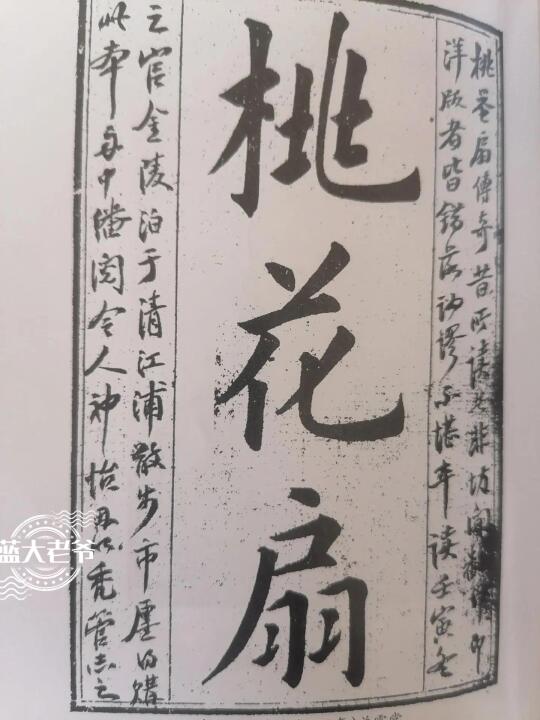 桃花扇傳奇昔所讀者非坊間
洋版者皆錯落訛謬不堪卒讀壬寅冬
桃花扇
之官金陵泊于清江浦散步市廛得購
此本舟中繙閱令人神怡因以禿管志之
蓝大老爷